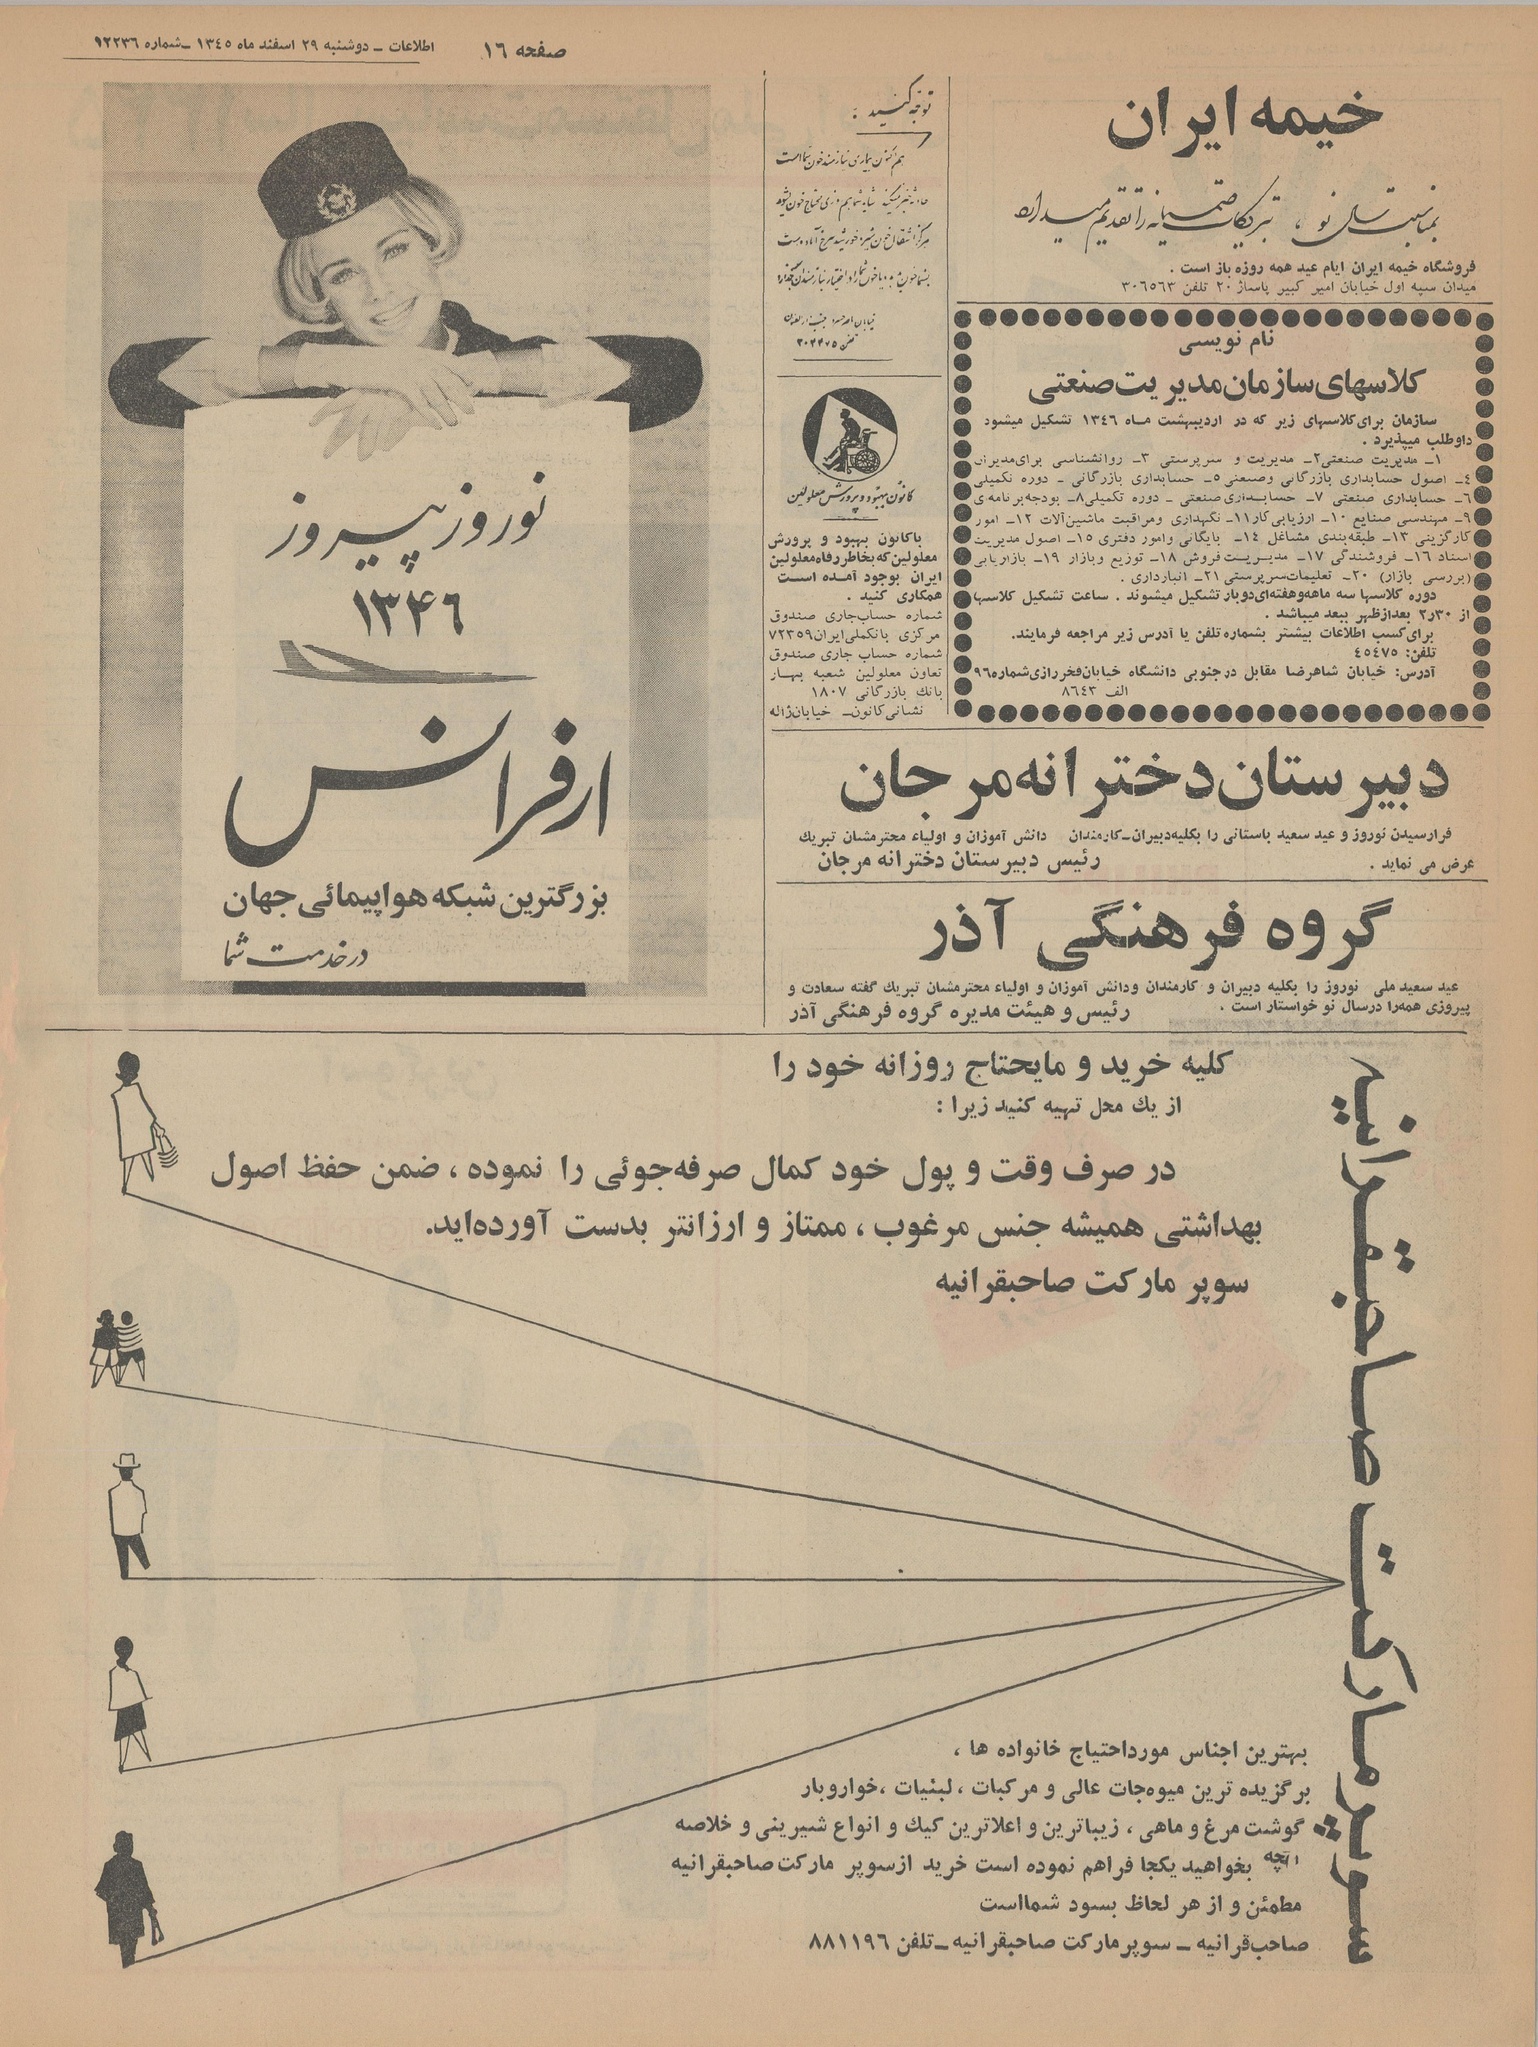 صفحه ١٦
اطلاعات ـ دوشنبه ٢٩ اسفند ماه ١٣٤٥ ـ شماره ١٢٢٣٦
خیمه ایران
بمناسبت سال نو ، تبریکات صمیمانه را تقدیم میدارد
فروشگاه خیمه ایران ایام عید همه روزه باز است .
میدان سپه اول خیابان امیر کبیر پاساژ ٢٠ تلفن ٣٠٦٥٦٣
نام نویسی
کلاسهای سازمان مدیریت صنعتی
سازمان برای کلاسهای زیر که در اردیبهشت مـاه ١٣٤٦ تشکیل میشود
داوطلب میپذیرد .
١ـ مدیریت صنعتی ٢ـ مدیریت و سرپرستی ٣ـ روانشناسی برای مدیران
٤ـ اصول حسابداری بازرگانی وصنعتی ٥ـ حسابداری بازرگانی ـ دوره تکمیلی
٦ـ حسابداری صنعتی ٧ـ حسابداری صنعتی ـ دوره تکمیلی ٨ـ بودجه برنامه‌ی
٩ـ مهندسی صنایع ١٠ـ ارزیابی کار ١١ـ نگهداری ومراقبت ماشین‌آلات ١٢ـ امور
کارگزینی ١٣ـ طبقه‌بندی مشاغل ١٤ـ بایگانی وامور دفتری ١٥ـ اصول مدیریت
اسناد ١٦ـ فروشندگی ١٧ـ مدیریت فروش ١٨ـ توزیع وبازار ١٩ـ بازاریابی
(بررسی بازار) ٢٠ـ تعلیمات سرپرستی ٢١ـ انبارداری .
دوره کلاسها سه ماهه‌وهفته‌ای دوبار تشکیل میشوند . ساعت تشکیل کلاسها
از ٢٫٣٠ بعدازظهر ببعد میباشد .
برای کسب اطلاعات بیشتر بشماره تلفن یا آدرس زیر مراجعه فرمایند.
تلفن: ٤٥٤٧٥
آدرس: خیابان شاهرضا مقابل درجنوبی دانشگاه خیابان فخررازی شماره ٩٦
الف ٨٦٤٣
توجه کنید :
هم اکنون بیماری نیازمند خون شما است
خیابان جنب
تلفن ٣٠٤٤٧٥
کانون بهبود و پرورش معلولین
باکانون بهبود و پرورش
معلولین که بخاطر رفاه معلولین
ایران بوجود آمده است
همکاری کنید .
شماره حساب جاری صندوق
مرکزی بانک ملی ایران ٧٢٣٥٩
شماره حساب جاری صندوق
تعاون معلولین شعبه بهار
بانك بازرگانی ١٨٠٧
نشانی کانون ـ خیابان ژاله
نوروز پیروز
١٣۴٦
ارفرانس
بزرگترین شبکه هواپیمائی جهان
در خدمت شما
دبیرستان دخترانه مرجان
فرارسیدن نوروز و عید سعید باستانی را بکلیه دبیران ـ کارمندان دانش آموزان و اولیاء محترمشان تبریك
عرض می نماید . رئیس دبیرستان دخترانه مرجان
گروه فرهنگی آذر
عید سعید ملی نوروز را بکلیه دبیران و کارمندان ودانش آموزان و اولیاء محترمشان تبریك گفته سعادت و
پیروزی همه‌را درسال نو خواستار است . رئیس و هیئت مدیره گروه فرهنگی آذر
کلیه خرید و مایحتاج روزانه خود را
از یك محل تهیه کنید زیرا :
در صرف وقت و پول خود کمال صرفه‌جوئی را نموده ، ضمن حفظ اصول
بهداشتی همیشه جنس مرغوب ، ممتاز و ارزانتر بدست آورده‌اید.
سوپر مارکت صاحبقرانیه
سوپرمارکت صاحبقرانیه
بهترین اجناس مورداحتیاج خانواده ها ،
برگزیده ترین میوه‌جات عالی و مرکبات ، لبنیات ، خواروبار
گوشت مرغ و ماهی ، زیباترین و اعلاترین کیك و انواع شیرینی و خلاصه
آنچه بخواهید یکجا فراهم نموده است خرید ازسوپر مارکت صاحبقرانیه
مطمئن و از هر لحاظ بسود شمااست
صاحب‌قرانیه ـ سوپرمارکت صاحبقرانیه ـ تلفن ٨٨١١٩٦